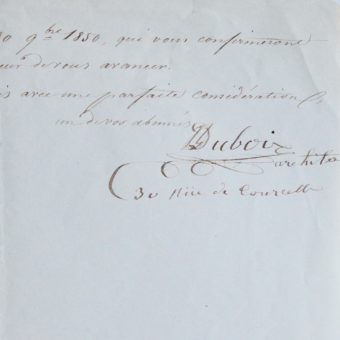 30 9bre 1850, qui vous confirmeront
de vous avancer
avec une parfaite considération
un de vos abonnés
Dubois
archite
30 Rue de Courcell